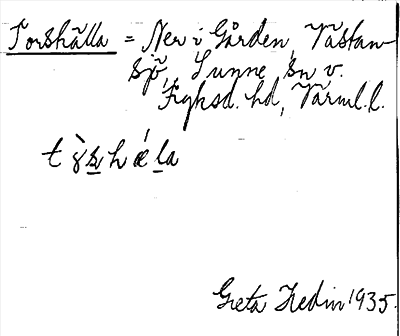 Torshälla = Ner i Gården, Västan-
sjö, Sunne sn v.
Fryksd. hd, Värml. l.
t ɤ̀s̲ h ǽ l̲a
Greta Hedin 1935.